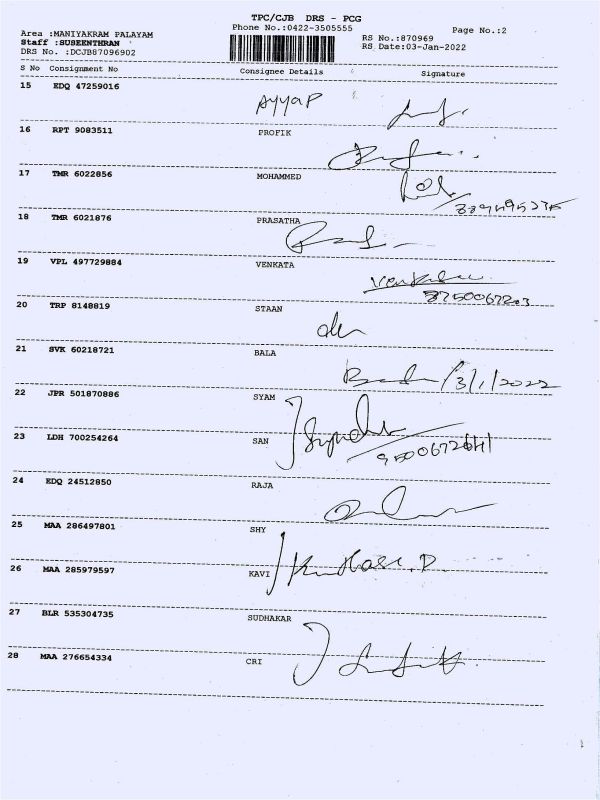 TPC/CJB DRS - PCG
Phone No.:0422-3505555
Page No.:2
Area :MANIYAKRAM PALAYAM
RS No.:870969
Staff :SUSEENTHRAN
RS Date:03-Jan-2022
DRS No. :DCJB87096902
S No Consignment No Consignee Details Signature
15 EDQ 47259016
AyyaP
16 RPT 9083511 PROFIK
17 TMR 6022856 MOHAMMED
18 TMR 6021876 PRASATHA
19 VPL 497729884 VENKATA
20 TRP 8148819 STAAN
21 SVK 60218721 BALA
3/1/2022
22 JPR 501870886 SYAM
23 LDH 700254264 SAN
24 EDQ 24512850 RAJA
25 MAA 286497801 SHY
26 MAA 285979597 KAVI
27 BLR 535304735 SUDHAKAR
28 MAA 276654334 CRI